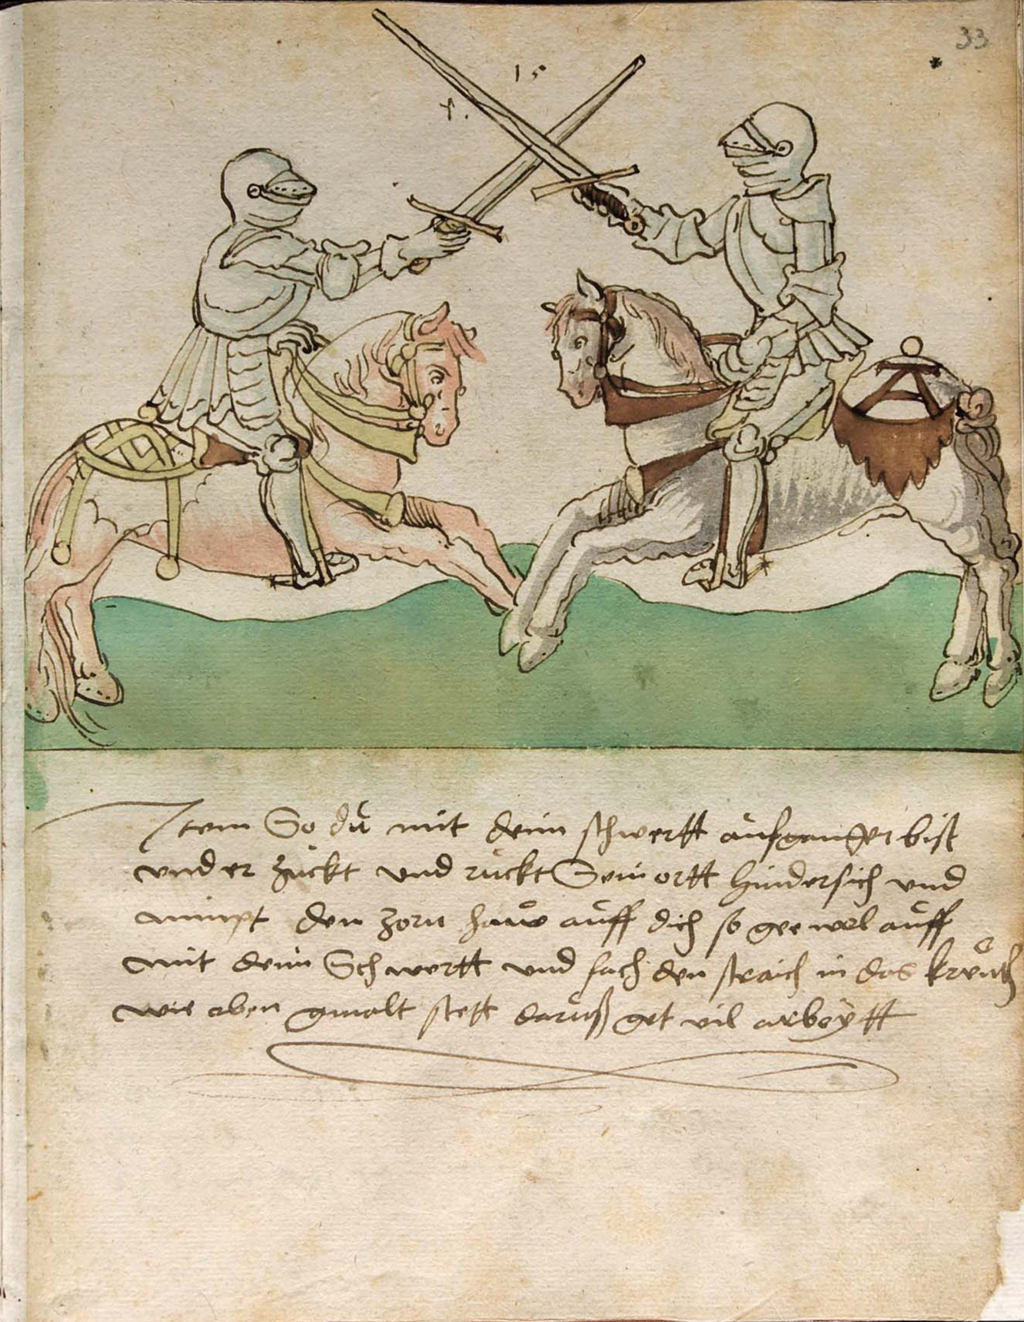 33
15
Item So dü mit deim schwertt aüfgangen bist
vnd er zückt vnd rückt Sein ortt hindersich vnd
nimpt den zorn haüw aüff dich so gee wol aüff
mit deim Schwertt vnd fach den straich in das kreütz
wie oben gmalt stett darüß get vil arbeÿtt